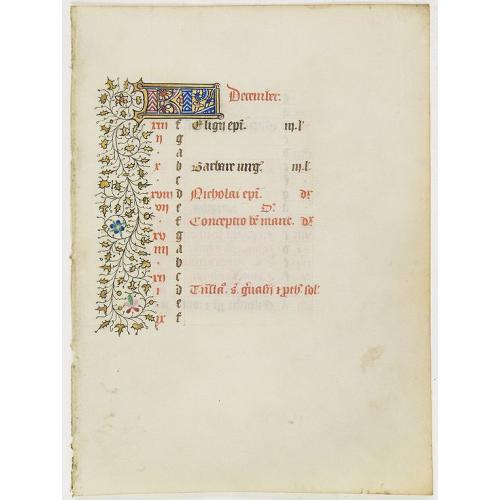 December.
xiii f Eligii epi. m.l'
ii g
a
x b Barbare virg. m.l'
c
xviii d Nicholai epi. dx
vii e O.
f Conceptio be marie. dx
xv g
iiii a
b
xii c
i d
e
ix f